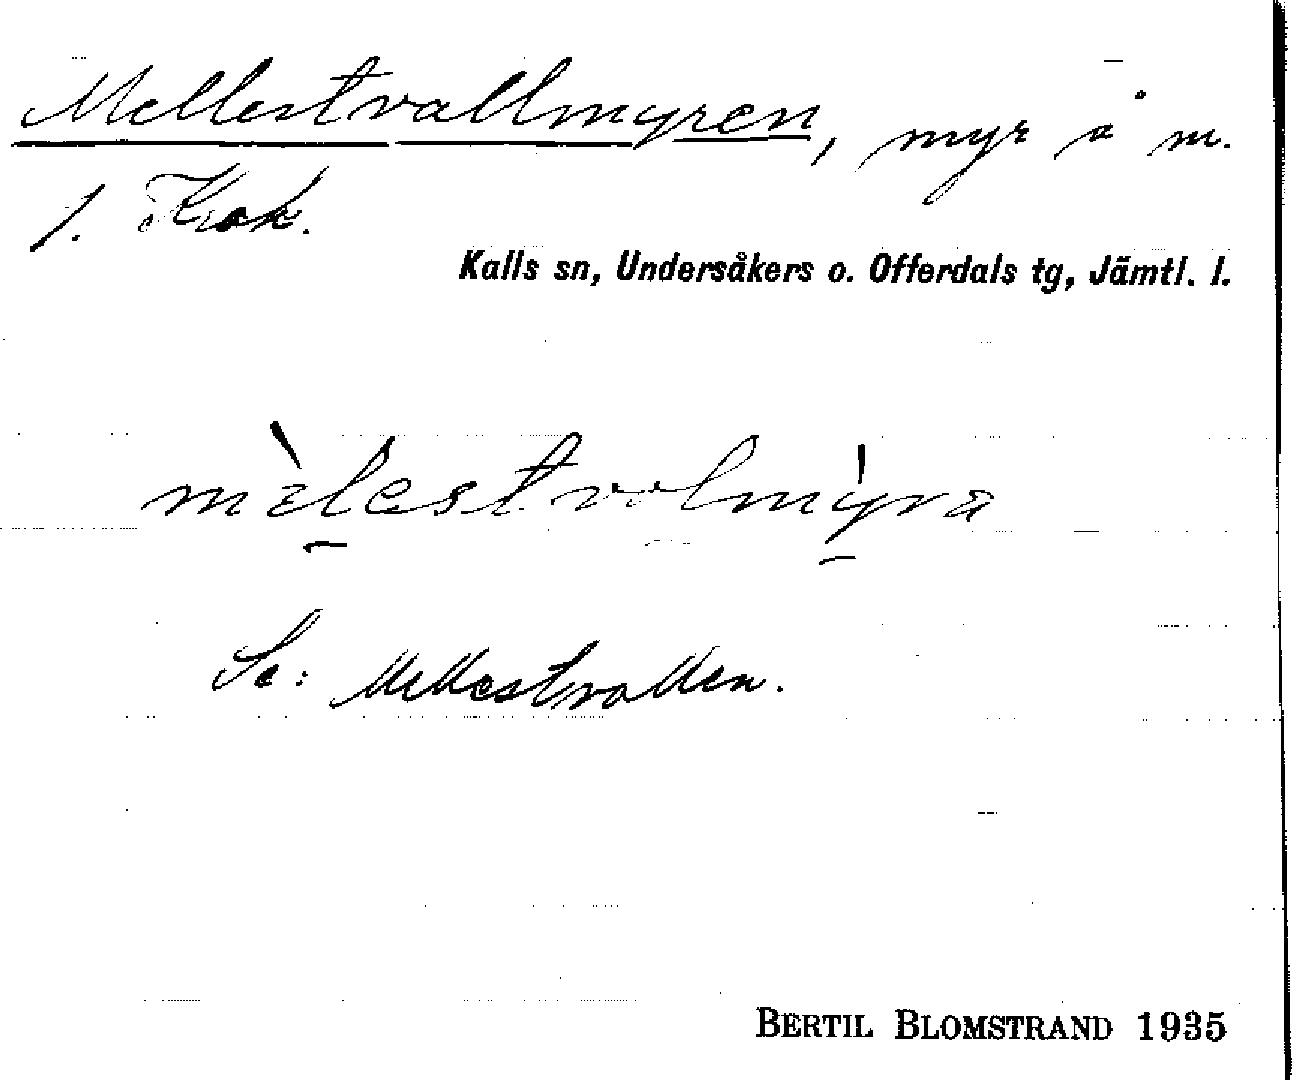 Mellestvallmyren, myr å m.
1. Krok.
Kalls sn, Undersåkers o. Offerdals tg, Jämtl. l.
mèlestvolmyra
Se: Mellestvallen.
BERTIL BLOMSTRAND 1935